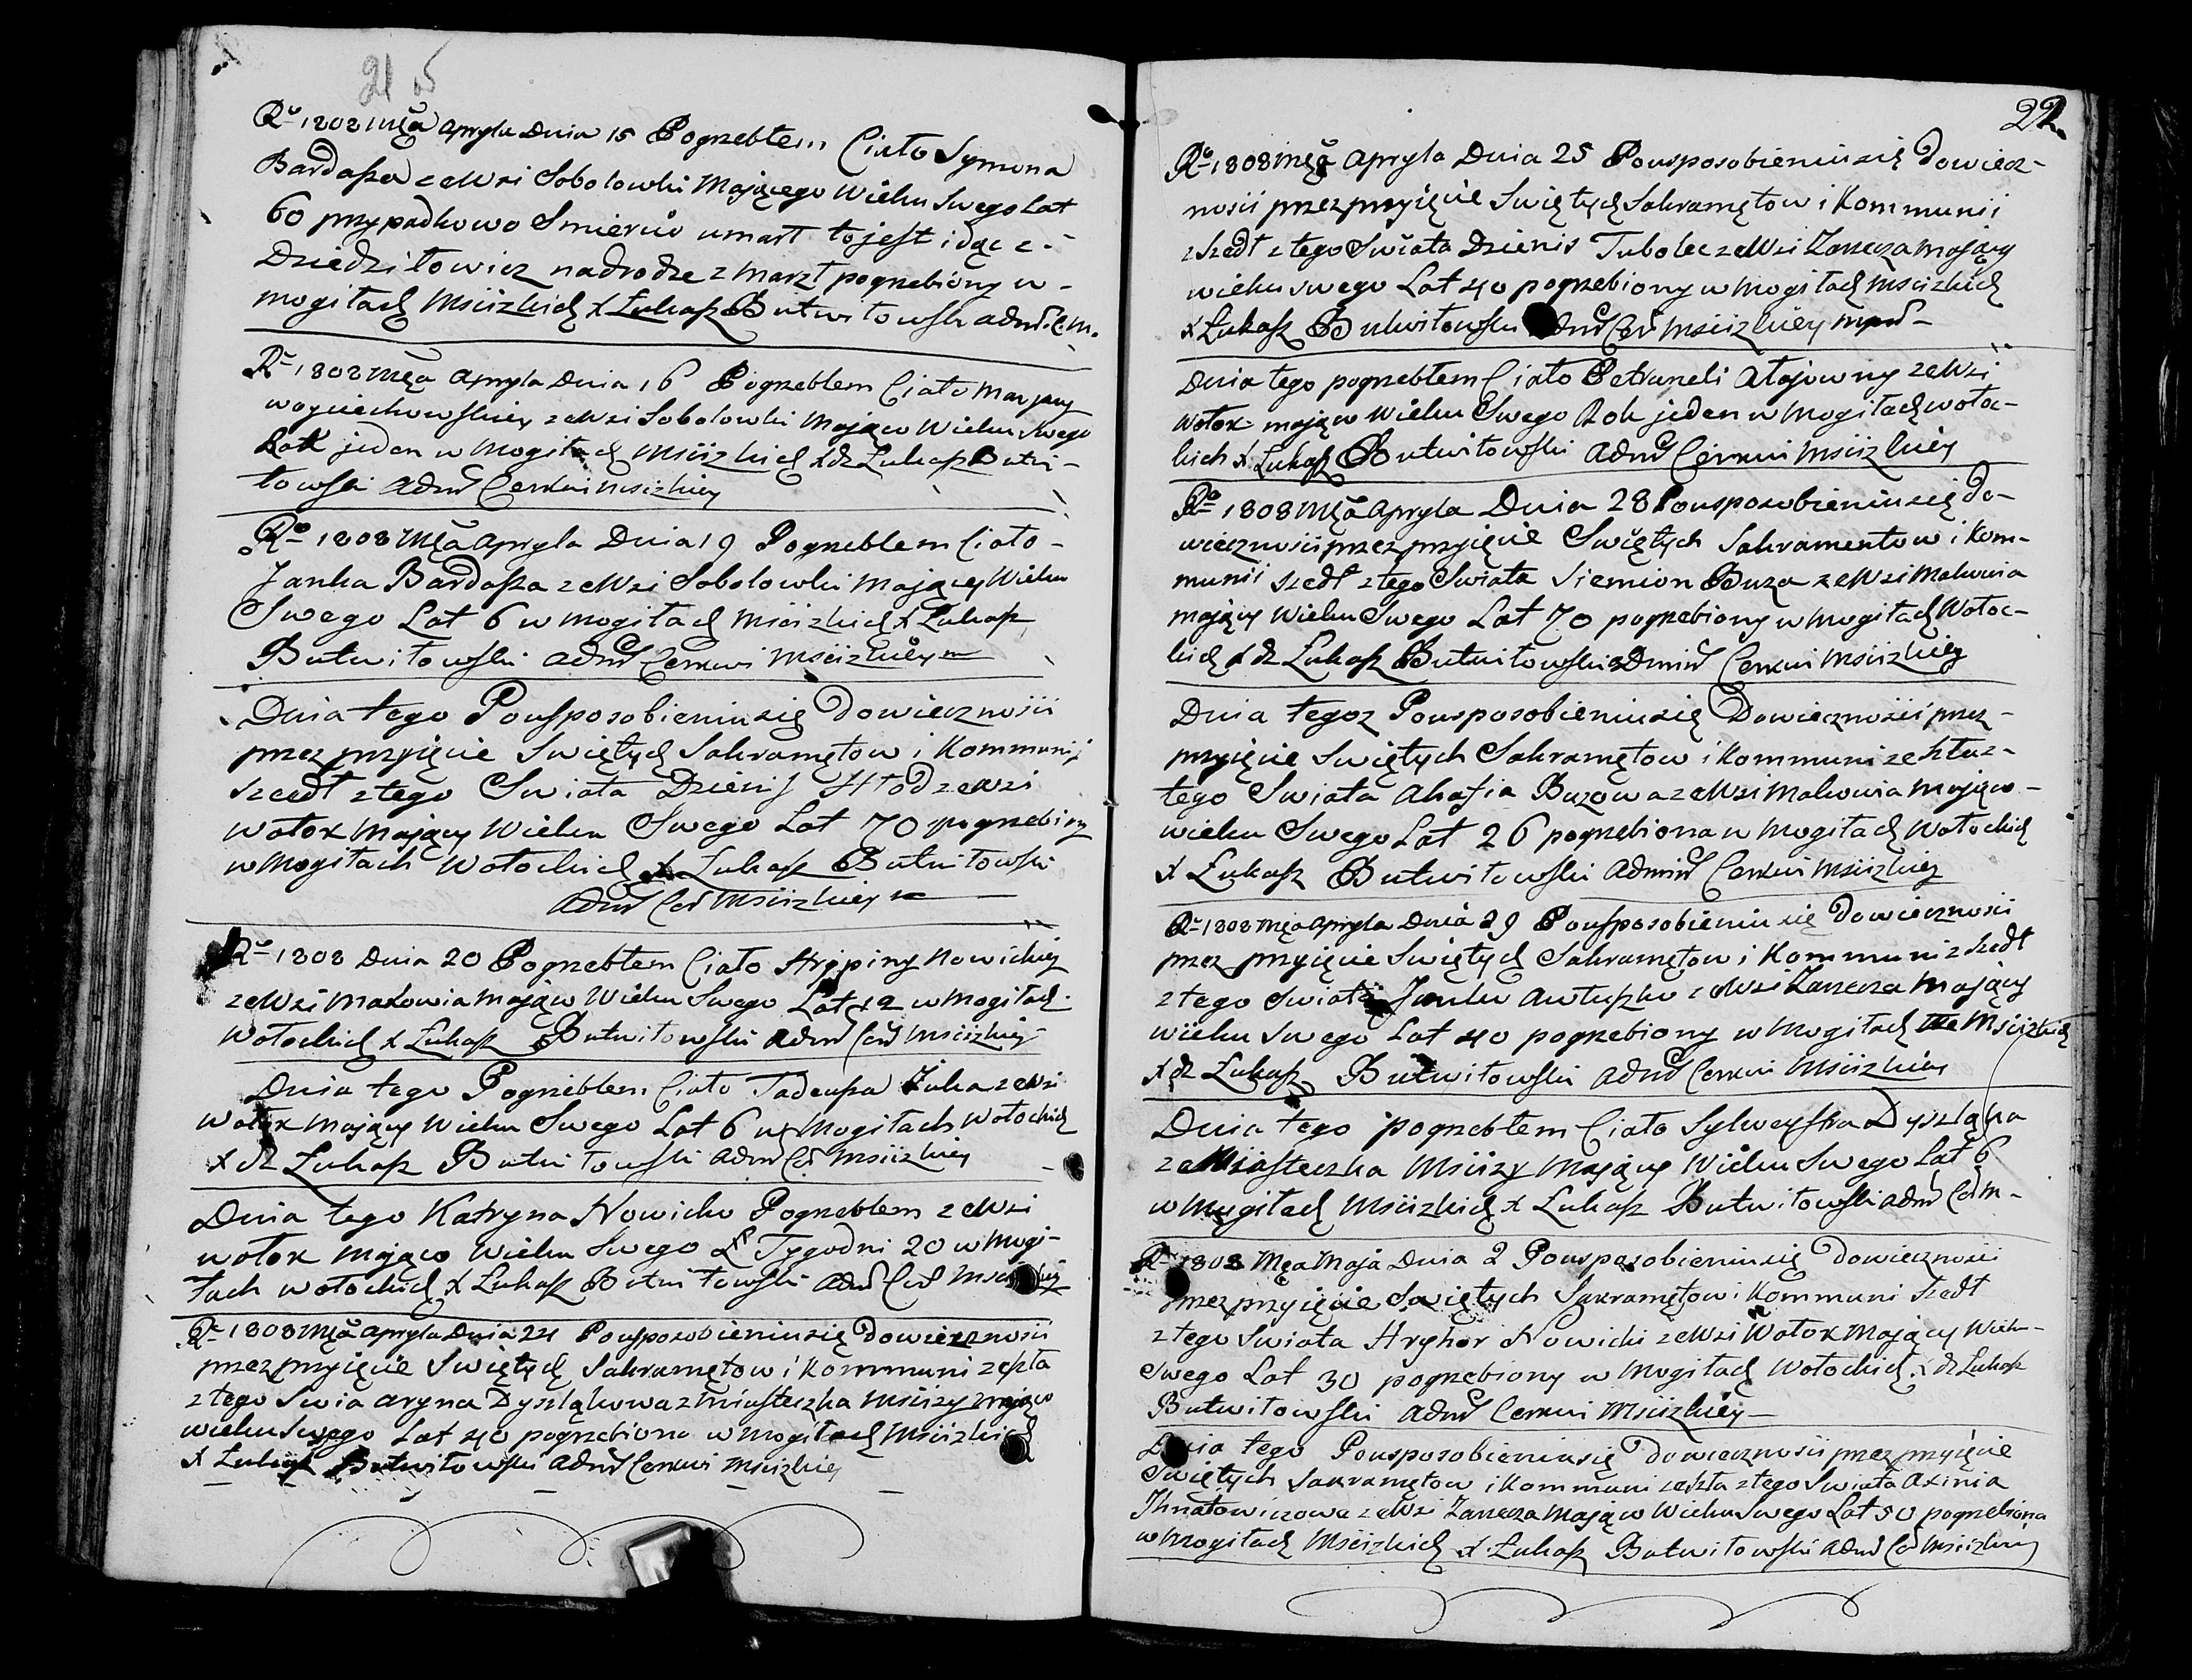 21
R° 1808 Mca Apryla Dnia 15 Pogrzebłem Ciało Symona
Bardasza ze Wsi Sobolowki Mającego Wieku Swego Lat
60 przypadkowo Smiercio umarł to jest idąc z
Dziedziłowicz na drodze zmarzł pogrzebiony w
mogiłach Mścizkich X Łukasz Butwiłowski adm C. M.
R° 1808 Mca Apryla Dnia 16 Pogrzebłem Ciało Maryany
Woyciechowskiey ze Wsi Sobolowki Mająco Wieku Swego
Rok jeden w Mogiłach Mścizkich X dz Łukasz Butwi-
łowski Adm Cerkwi Mścizkiey
R° 1808 Mca Apryla Dnia 19 Pogrzebłem Ciało
Janka Bardasza ze Wsi Sobolowki Mający Wieku
Swego Lat 6 w mogiłach Mścizkich X Łukasz
Butwiłowski Adm Cerkwi Mścizkiey
Dnia tego Po usposobieniu się do wieczności
przez przyięcie Swiętych Sakramętow i Kommunij
szedł z tego Swiata Dzienis Hłod ze Wsi
Wołok Mający Wieku Swego Lat 70 pogrzebiony
w Mogiłach Wołockich X Łukasz Butwiłowski
Adm Cer Mścizkiey
R° 1808 Dnia 20 Pogrzebłem Ciało Hrypiny Nowickiey
ze Wsi Makowia Mająco Wieku Swego Lat 12 w Mogiłach
Wołockich X Łukasz Butwiłowski Adm Cer Mścizkiey
Dnia tego Pogrzebłem Ciało Tadeusza Żuka ze Wsi
Wołok Mający Wieku Swego Lat 6 w Mogiłach Wołockich
X dz Łukasz Butwiłowski Adm Cer Mścizkiey
Dnia tego Katryna Nowicko Pogrzebłem ze Wsi
Wołok Mająco Wieku Swego Tygodni 20 w Mogi-
łach Wołockich X Łukasz Butwiłowski Adm Cer
R° 1808 Mca Apryla Dnia 24 Po usposobieniu się do wieczności
przez przyięcie Swiętych Sakramętow i Kommuni zeszła
z tego Swia Aryna Dyszląkowa z Miasteczka Mścizy mająco
wieku Swego Lat 40 pogrzebiono w Mogiłach Mścizkich
X Łukasz Butwiłowski Adm Cerkwi Mścizkiey
22
R° 1808 Mca Apryla Dnia 25 Po usposobieniu się do wiecz-
nosii przez przyięcie Swiętych Sakramętow i Kommunii
zszedł z tego Swiata Dzienis Tubolec ze Wsi Zarecza mający
wieku swego Lat 40 pogrzebiony w mogiłach Mścizkich
X Łukasz Butwiłowski Adm Cer Mścizkiey
Dnia tego pogrzebłem Ciało Petruneli Ałajowny ze Wsi
Wołok mająco Wieku Swego Rok jeden w Mogiłach Wołoc-
kich X Łukasz Butwiłowski Adm Cerkwi Mścizkiey
R° 1808 Mca Apryla Dnia 28 Po usposobieniu się do
wieczności przez przyięcie Swiętych Sakramentow i Kom-
munii szedł z tego Swiata Siemion Buza ze Wsi Makowia
mający Wieku Swego Lat 70 pogrzebiony w Mogiłach Wołoc-
kich X dz Łukasz Butwiłowski Admin Cerkwi Mścizkiey
Dnia tegoz Po usposobieniu się Do wieczności przez
przyięcie Swiętych Sakramętow i Kommuni zeszła z
tego Swiata Ahafia Buzowa ze Wsi Makowia Mająco
wieku Swego Lat 26 pogrzebiona w Mogiłach Wołockich
X Łukasz Butwiłowski Admin Cerkwi Mścizkiey
R° 1808 Mca Apryla Dnia 29 Po usposobieniu się do wieczności
przez przyięcie Swiętych Sakramętow i Kommuni zszedł
z tego Swiata Janko Awtuszko z Wsi Zarecza Mający
wieku Swego Lat 40 pogrzebiony w Mogiłach Mścizkich
X dz Łukasz Butwiłowski Adm Cerkwi Mścizkiey
Dnia tego pogrzebłem Ciało Sylwestra Dyszląka
z Miasteczka Mścizy Mający Wieku Swego Lat 6
w Mogiłach Mścizkich X Łukasz Butwiłowski Adm Cer M-
R° 1808 Mca Maja Dnia 2 Po usposobieniu się do wieczności
przez przyięcie Swiętych Sakramętow i Kommuni szedł
z tego Swiata Hryhor Nowicki ze Wsi Wołok Mający Wieku
Swego Lat 30 pogrzebiony w Mogiłach Wołockich X dz Łukasz
Butwiłowski Adm Cerkwi Mścizkiey
Dnia tego Po usposobieniu się do wieczności przez przyięcie
Swiętych Sakramętow i Kommuni zeszła z tego Swiata Axinia
Ihnatowiczowa ze Wsi Zarecza Mająco Wieku Swego Lat 50 pogrzebiona
w Mogiłach Mścizkich X Łukasz Butwiłowski Adm Cer Mścizkiey